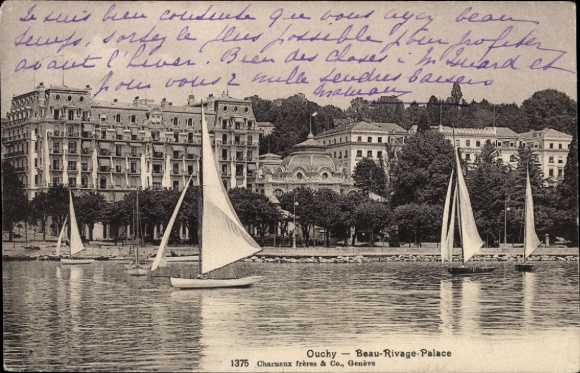 Je suis bien contente que vous ayez beau
temps, sortez le plus possible pour profiter
avant l'hiver. Bien des choses à M Suard et
pour vous 2 mille tendres baisers
maman
Ouchy — Beau-Rivage-Palace
1375 Charnaux frères & Co., Genève